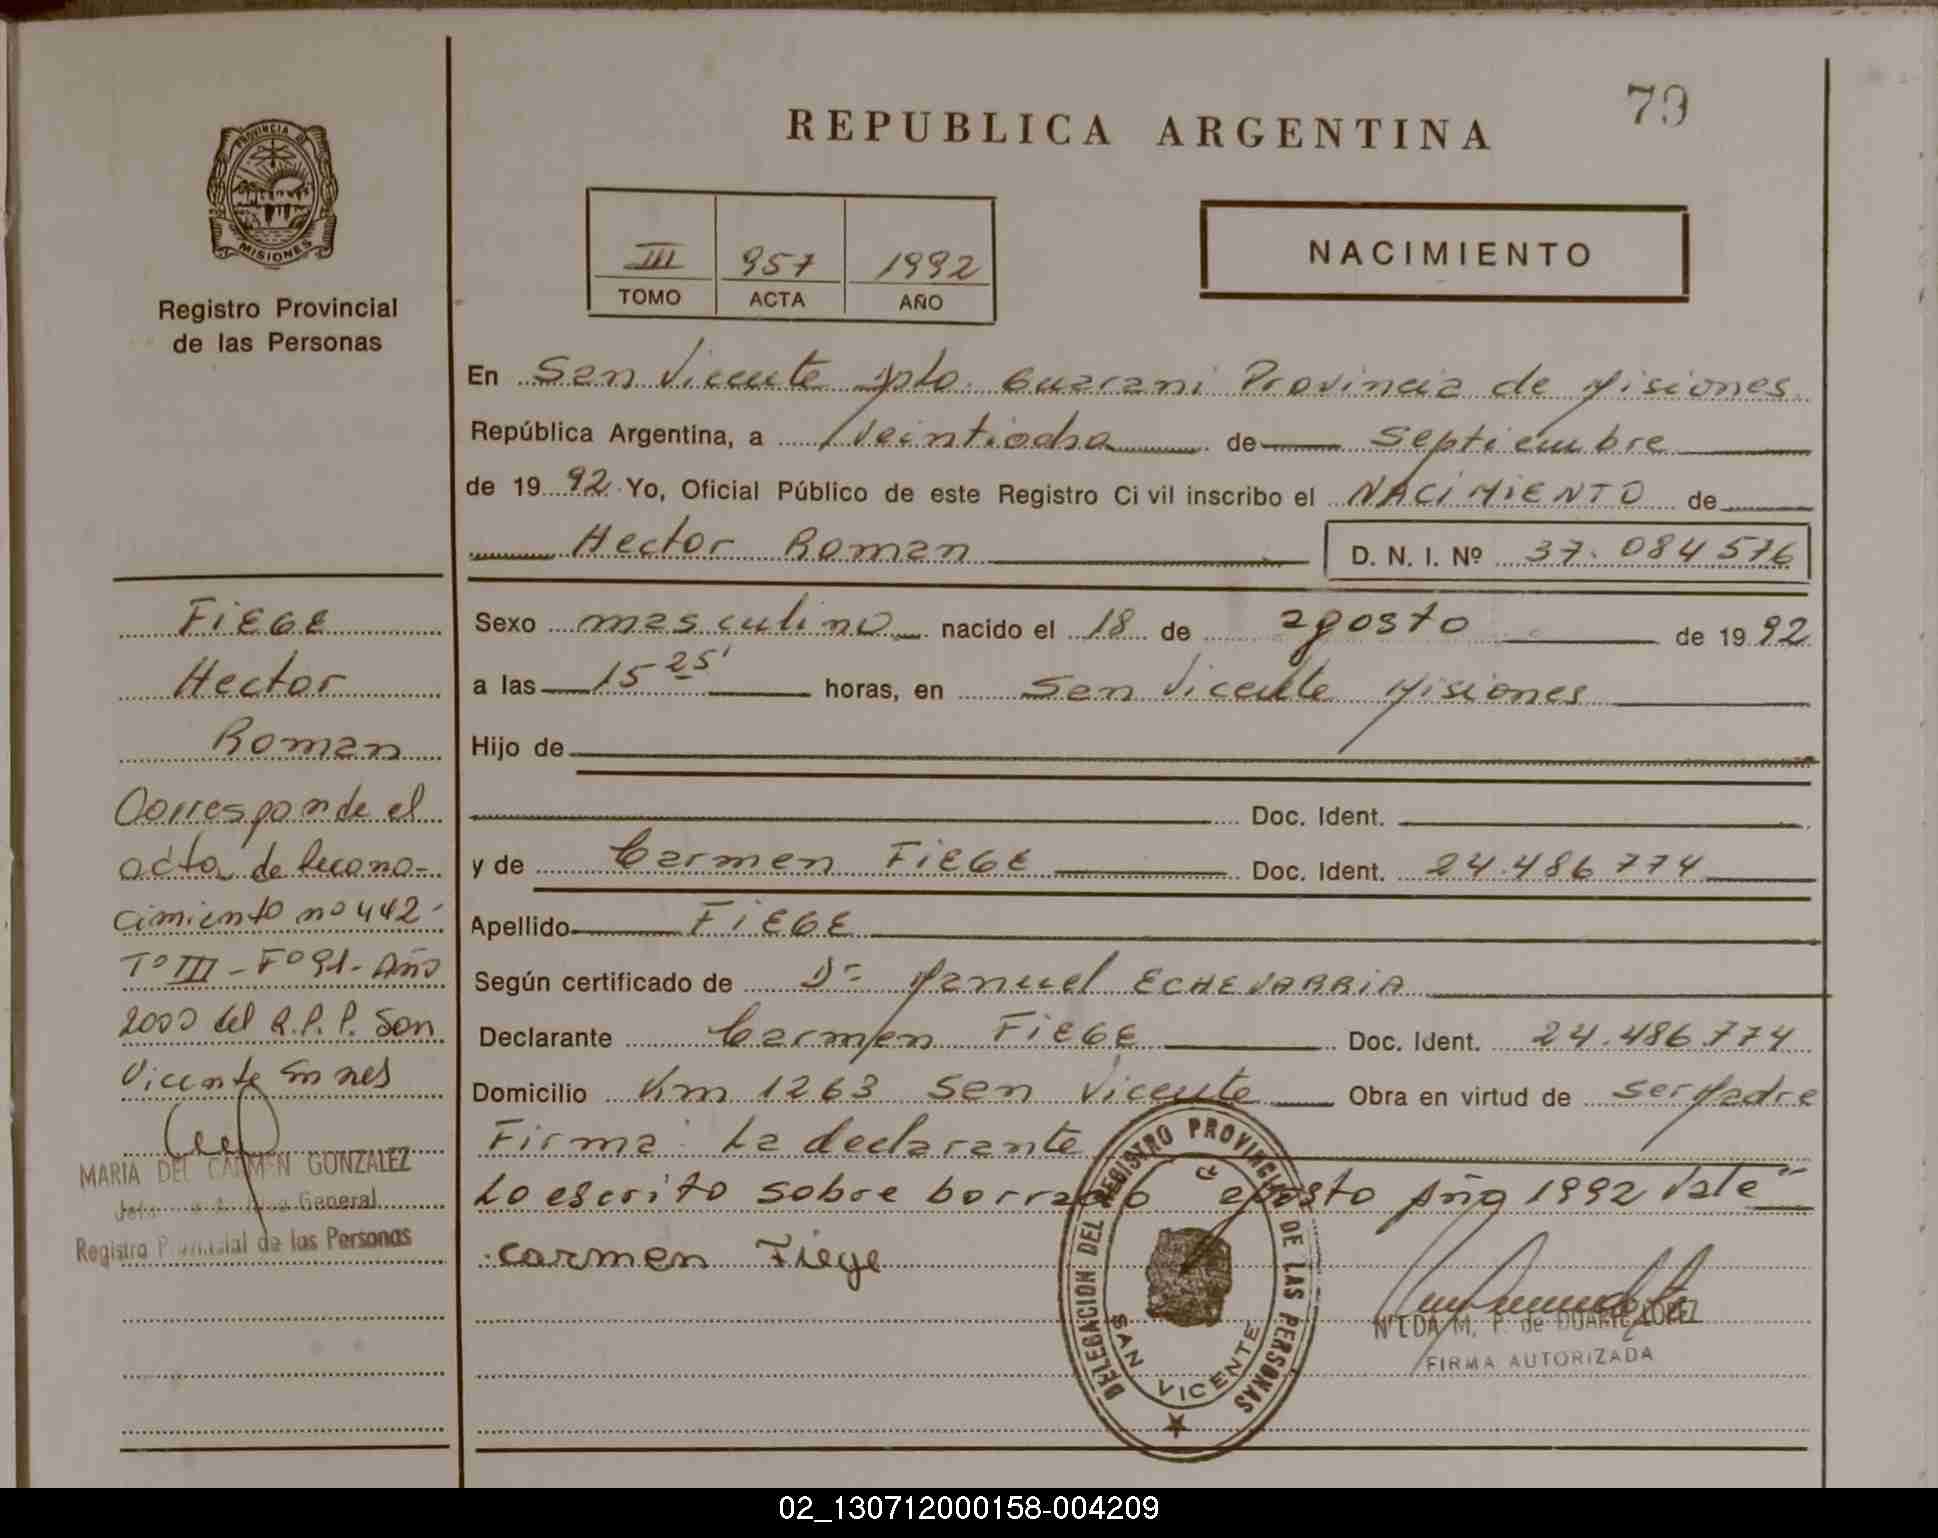 79
REPUBLICA ARGENTINA
PROVINCIA DE
MISIONES
Registro Provincial
de las Personas
III 957 1992
TOMO ACTA AÑO
NACIMIENTO
En San Vicente Dpto. Guarani Provincia de Misiones
República Argentina, a Veintiocho de Septiembre
de 1992 Yo, Oficial Público de este Registro Ci vil inscribo el NACIMIENTO de
Hector Roman D. N. I. Nº 37.084576
Sexo masculino nacido el 18 de agosto de 1992
a las 15 25' horas, en San Vicente Misiones
Hijo de
Doc. Ident.
y de Carmen FiEGE Doc. Ident. 24.486.774
Apellido FiEGE
Según certificado de Dr Manuel ECHEVARRiA
Declarante Carmen FiEGE Doc. Ident. 24.486.774
Domicilio Km 1263 San Vicente Obra en virtud de ser Madre
Firma: La declarante
Lo escrito sobre borrado "agosto Año 1992 Vale"
Carmen Fiege
DELEGACION DEL REGISTRO PROVINCIAL DE LAS PERSONAS
SAN VICENTE
NILDA M. P. de DUARTE LOPEZ
FIRMA AUTORIZADA
FiEGE
Hector
Roman
Corresponde el
acta de Recono-
cimiento nº 442-
Tº III - Fº 91 - Año
2000 del R.P.P. San
Vicente Mnes
MARIA DEL CARMEN GONZALEZ
General
Registro Provincial de las Personas
02_130712000158-004209